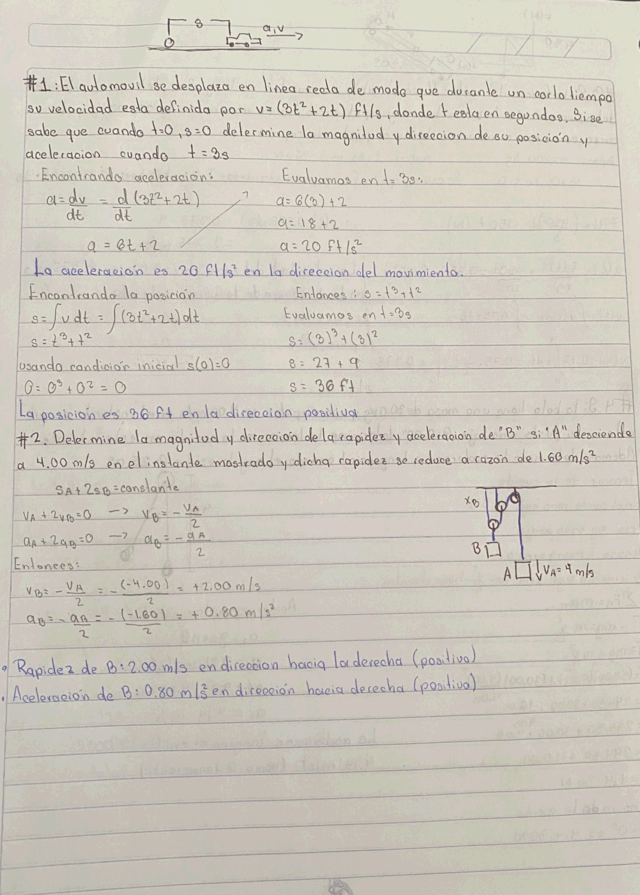 s
a,v
#1: El automovil se desplaza en linea recta de modo que durante un corto tiempo
su velocidad esta definida por v=(3t²+2t) ft/s, donde t esta en segundos. Si se
sabe que cuando t=0, s=0 determine la magnitud y direccion de su posición y
aceleracion cuando t=3s
Encontrando aceleración:
a=dv/dt = d/dt (3t²+2t)
a = 6t+2
Evaluamos en t=3s:
a=6(3)+2
a=18+2
a=20 ft/s²
La aceleración es 20 ft/s² en la direccion del movimiento.
Encontrando la posición
s=∫v dt = ∫(3t²+2t)dt
s=t³+t²
usando condición inicial s(0)=0
0=0³+0²=0
Entonces: s=t³+t²
Evaluamos en t=3s
s=(3)³+(3)²
s=27+9
s=36 ft
La posición es 36 ft en la dirección positiva
#2. Determine la magnitud y dirección de la rapidez y aceleración de "B" si "A" desciende
a 4.00 m/s en el instante mostrado y dicha rapidez se reduce a razón de 1.60 m/s²
SA+2SB=constante
VA+2VB=0 → VB=-VA/2
aA+2aB=0 → aB=-aA/2
Entonces:
VB=-VA/2 = -(-4.00)/2 = +2.00 m/s
aB=-aA/2 = -(-1.60)/2 = +0.80 m/s²
XB
B
A
VA=4 m/s
• Rapidez de B: 2.00 m/s en direccion hacia la derecha (positivo)
• Aceleración de B: 0.80 m/s² en dirección hacia derecha (positivo)